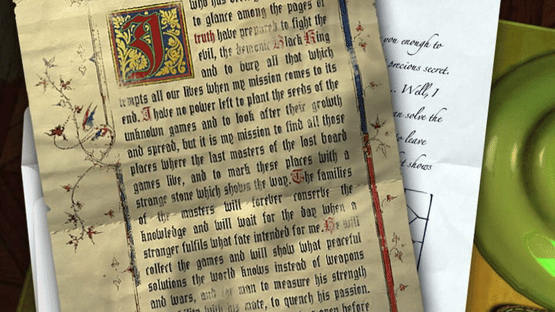 who has been
to glance among the pages of
truth have prepared to fight the
evil, the demonic Black King
and to bury all that which
tempts all our lives when my mission comes to its
end. I have no power left to plant the seeds of the
unknown games and to look after their growth
and spread, but it is my mission to find all those
places where the last masters of the lost board
games live, and to mark these places with a
strange stone which shows the way. The families
of the masters will forever conserve the
knowledge and will wait for the day when a
stranger fulfils what fate intended for me. He will
collect the games and will show what peaceful
solutions the world knows instead of weapons
and wars, and for man to measure his strength
with his mate, to quench his passion.
open before
you enough to
precious secret.
... Well, I
can solve the
to leave
t shows